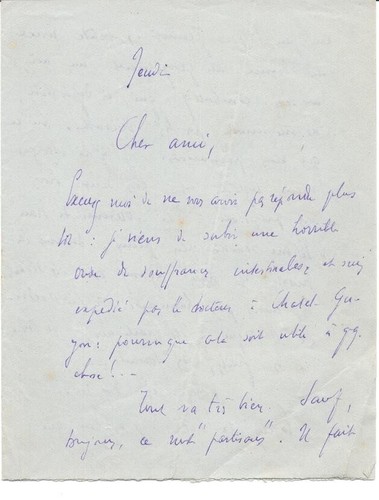 Jeudi
Cher ami,
Excusez moi de ne vous avoir pas répondu plus
tôt : je viens de subir une horrible
onde de souffrances intestinales et suis
expédié par le docteur à Chatel-Gu-
yon : pourvu que cela soit utile à qq.
chose ! . _
Tout va très bien. Sauf,
toujours, ce mot "partisans". Il fait